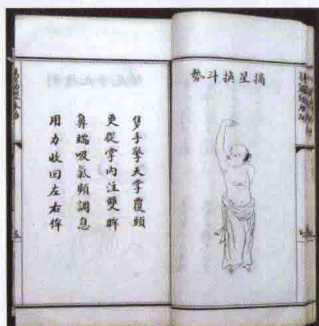 摘星換斗勢
隻手擎天掌覆頭
更從掌內注雙眸
鼻端吸氣頻調息
用力收回左右侔